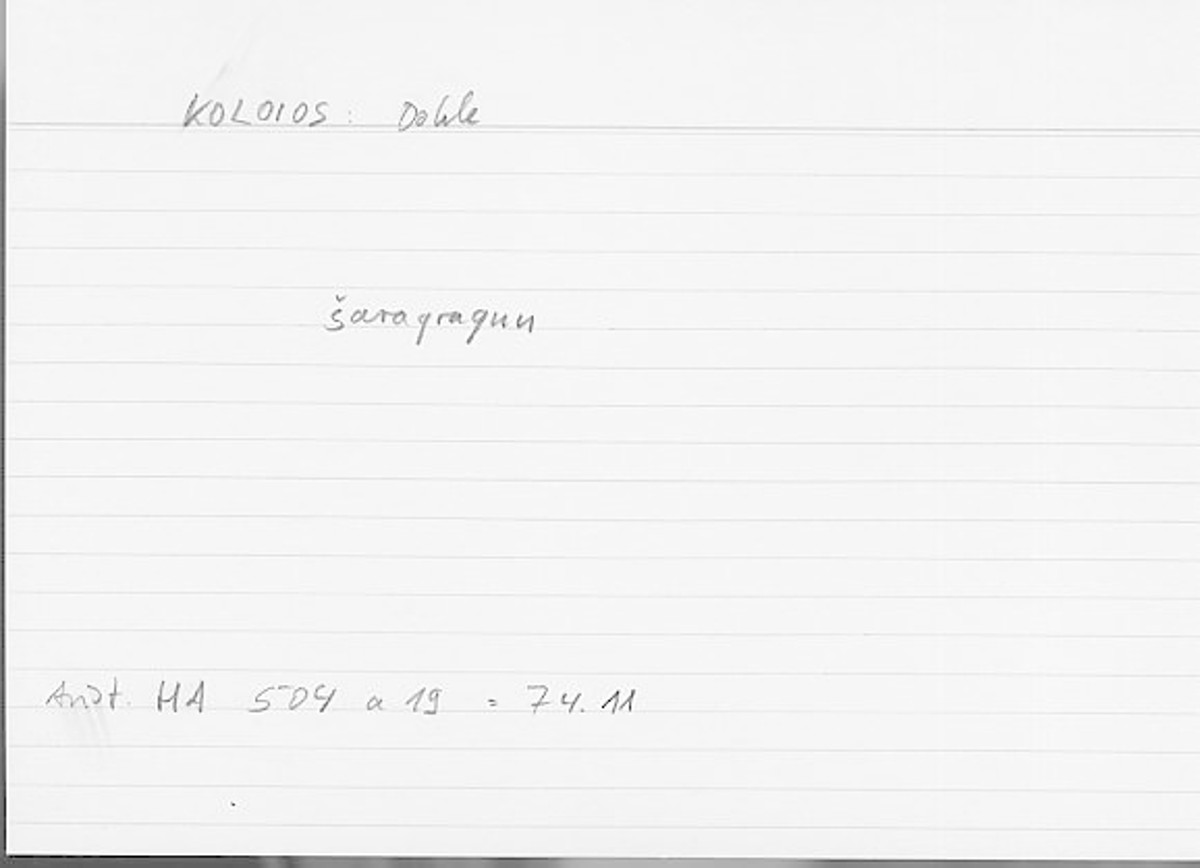 KOLOIOS: Dohle
šaraqraqun
Arist. HA 504 a 19 = 74.11